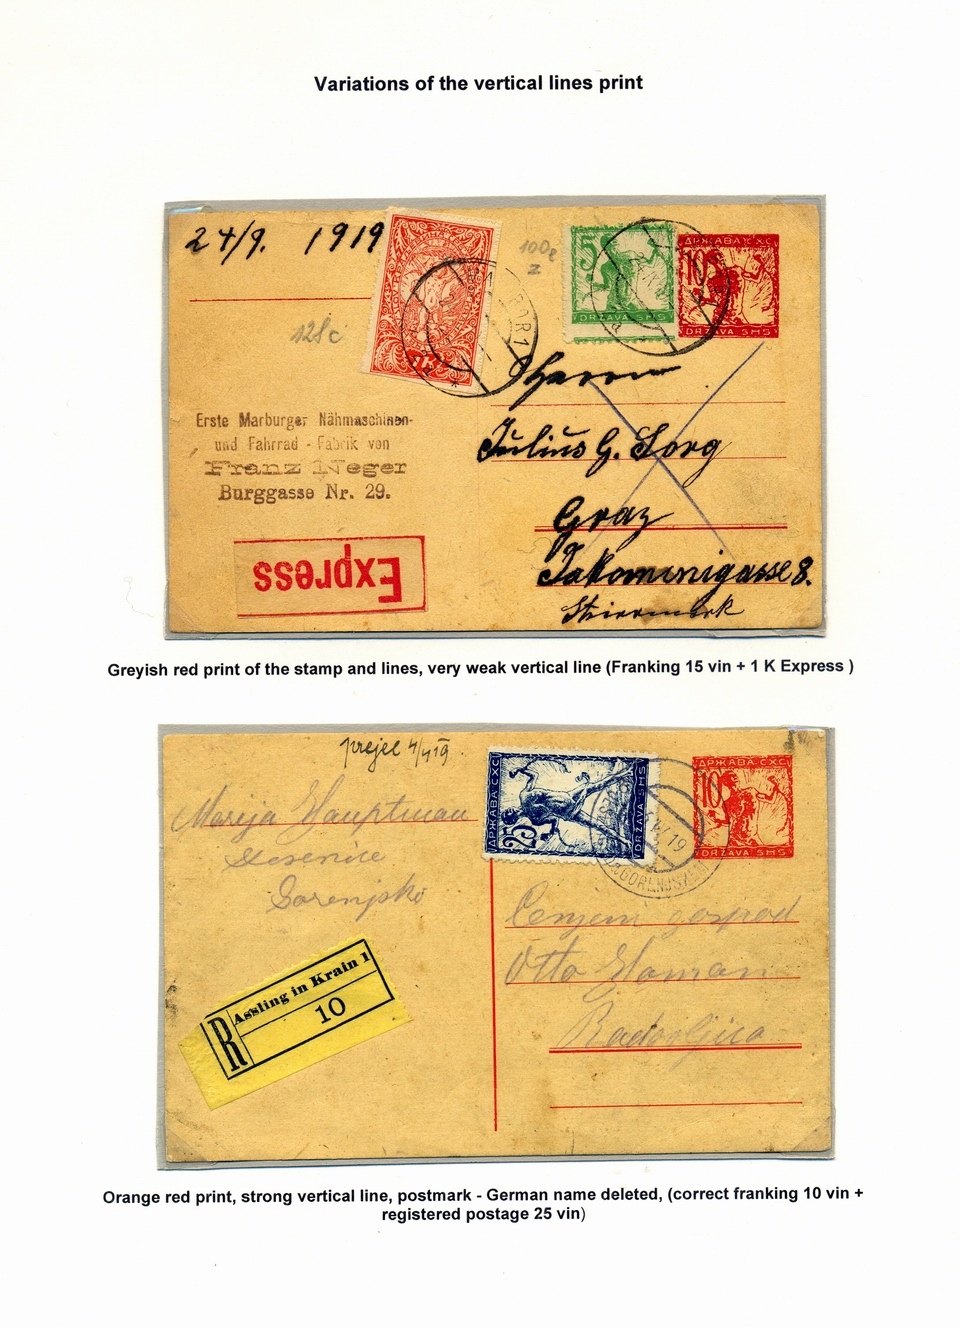 Variations of the vertical lines print
24/9. 1919
100e
z
128c
5
ДРЖАВА СХС
10
DRŽAVA SHS
DRŽAVA SHS
Herrn
Julius G. Sorg
Graz
Jakominigasse 8.
Steiermark
Erste Marburger Nähmaschinen-
und Fahrrad - Fabrik von
Franz Neger
Burggasse Nr. 29.
Express
Greyish red print of the stamp and lines, very weak vertical line (Franking 15 vin + 1 K Express )
prejel 4/4 19.
Marija Hauptman
Jesenice
Gorenjsko
ДРЖАВА СХС
25
DRŽAVA SHS
ДРЖАВА СХС
10
DRŽAVA SHS
Cenjeni gospod
Otto Homan
Radovljica
R
Assling in Krain 1
10
Orange red print, strong vertical line, postmark - German name deleted, (correct franking 10 vin +
registered postage 25 vin)